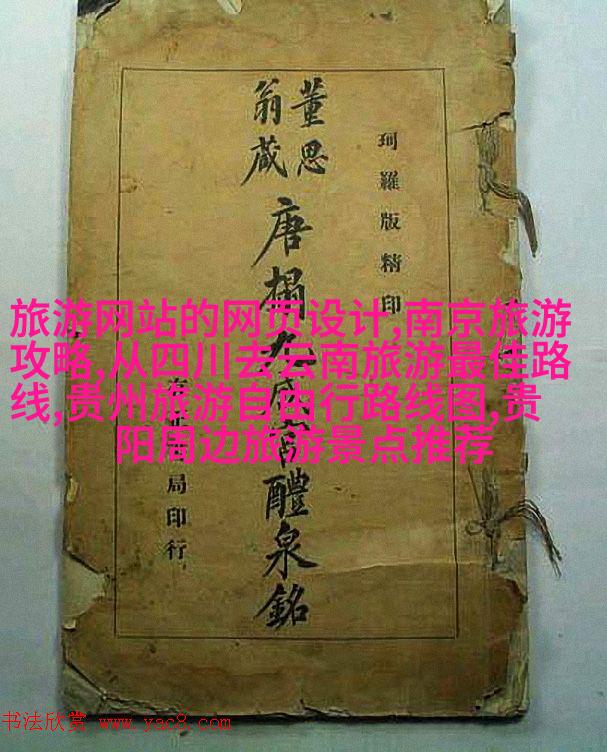 珂羅版精印
董思
翁藏
唐搨九成宮醴泉銘
局印行
旅游网站的网页设计,南京旅游
攻略,从四川去云南旅游最佳路
线,贵州旅游自由行路线图,贵
阳周边旅游景点推荐
书法欣赏 www.yac8.com